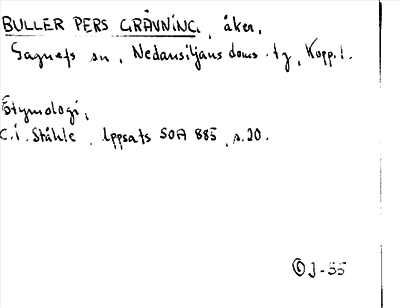 BULLER PERS GRÄVNING, åker,
Gagnefs sn, Nedansiljans doms.tg, Kopp.l.
Etymologi,
C.I. Ståhle. Uppsats SOA 885, s.20.
© J-55